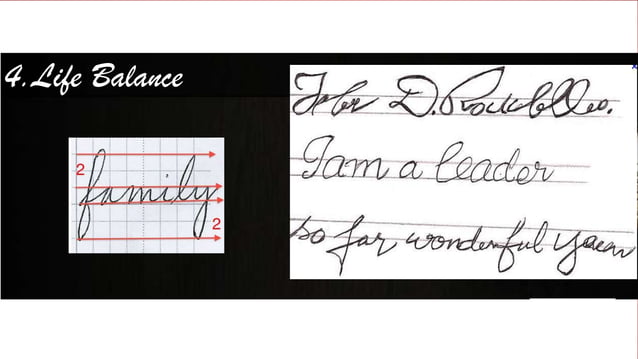 4. Life Balance
John D.
2
family
2
I am a leader
so far wonderful